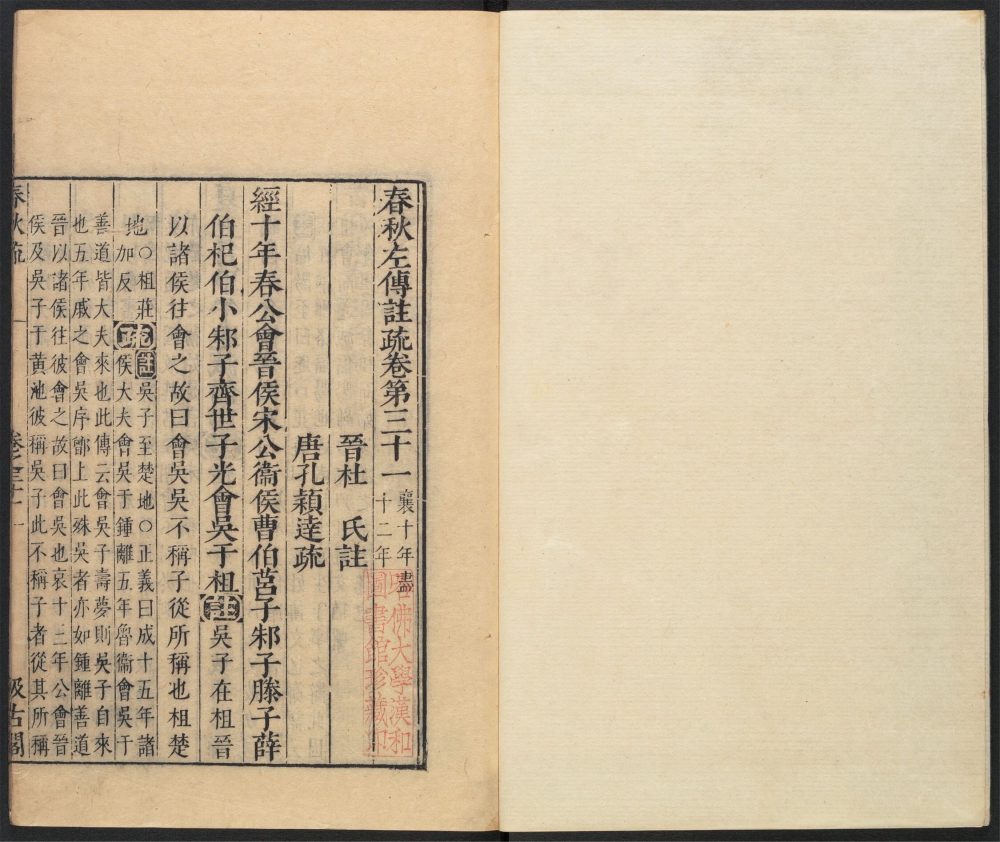 春秋左傳註疏卷第三十一 襄十年盡十二年
哈佛大學漢和
圖書館珍藏印
晉杜 氏註
唐孔穎達疏
經十年春公會晉侯宋公衞侯曹伯莒子邾子滕子薛
伯杞伯小邾子齊世子光會吳于柤註吳子在柤晉
以諸侯往會之故曰會吳吳不稱子從所稱也柤楚
地〇柤莊加反疏註吳子至楚地〇正義曰成十五年諸
侯大夫會吳于鍾離五年魯衞會吳于
善道皆大夫來也此傳云會吳子壽夢則吳子自來
也五年戚之會吳序鄫上此殊吳者亦如鍾離善道
晉以諸侯往彼會之故曰會吳也哀十三年公會晉
侯及吳子于黃池彼稱吳子此不稱子者從其所稱
春秋疏 卷三十一 一 汲古閣